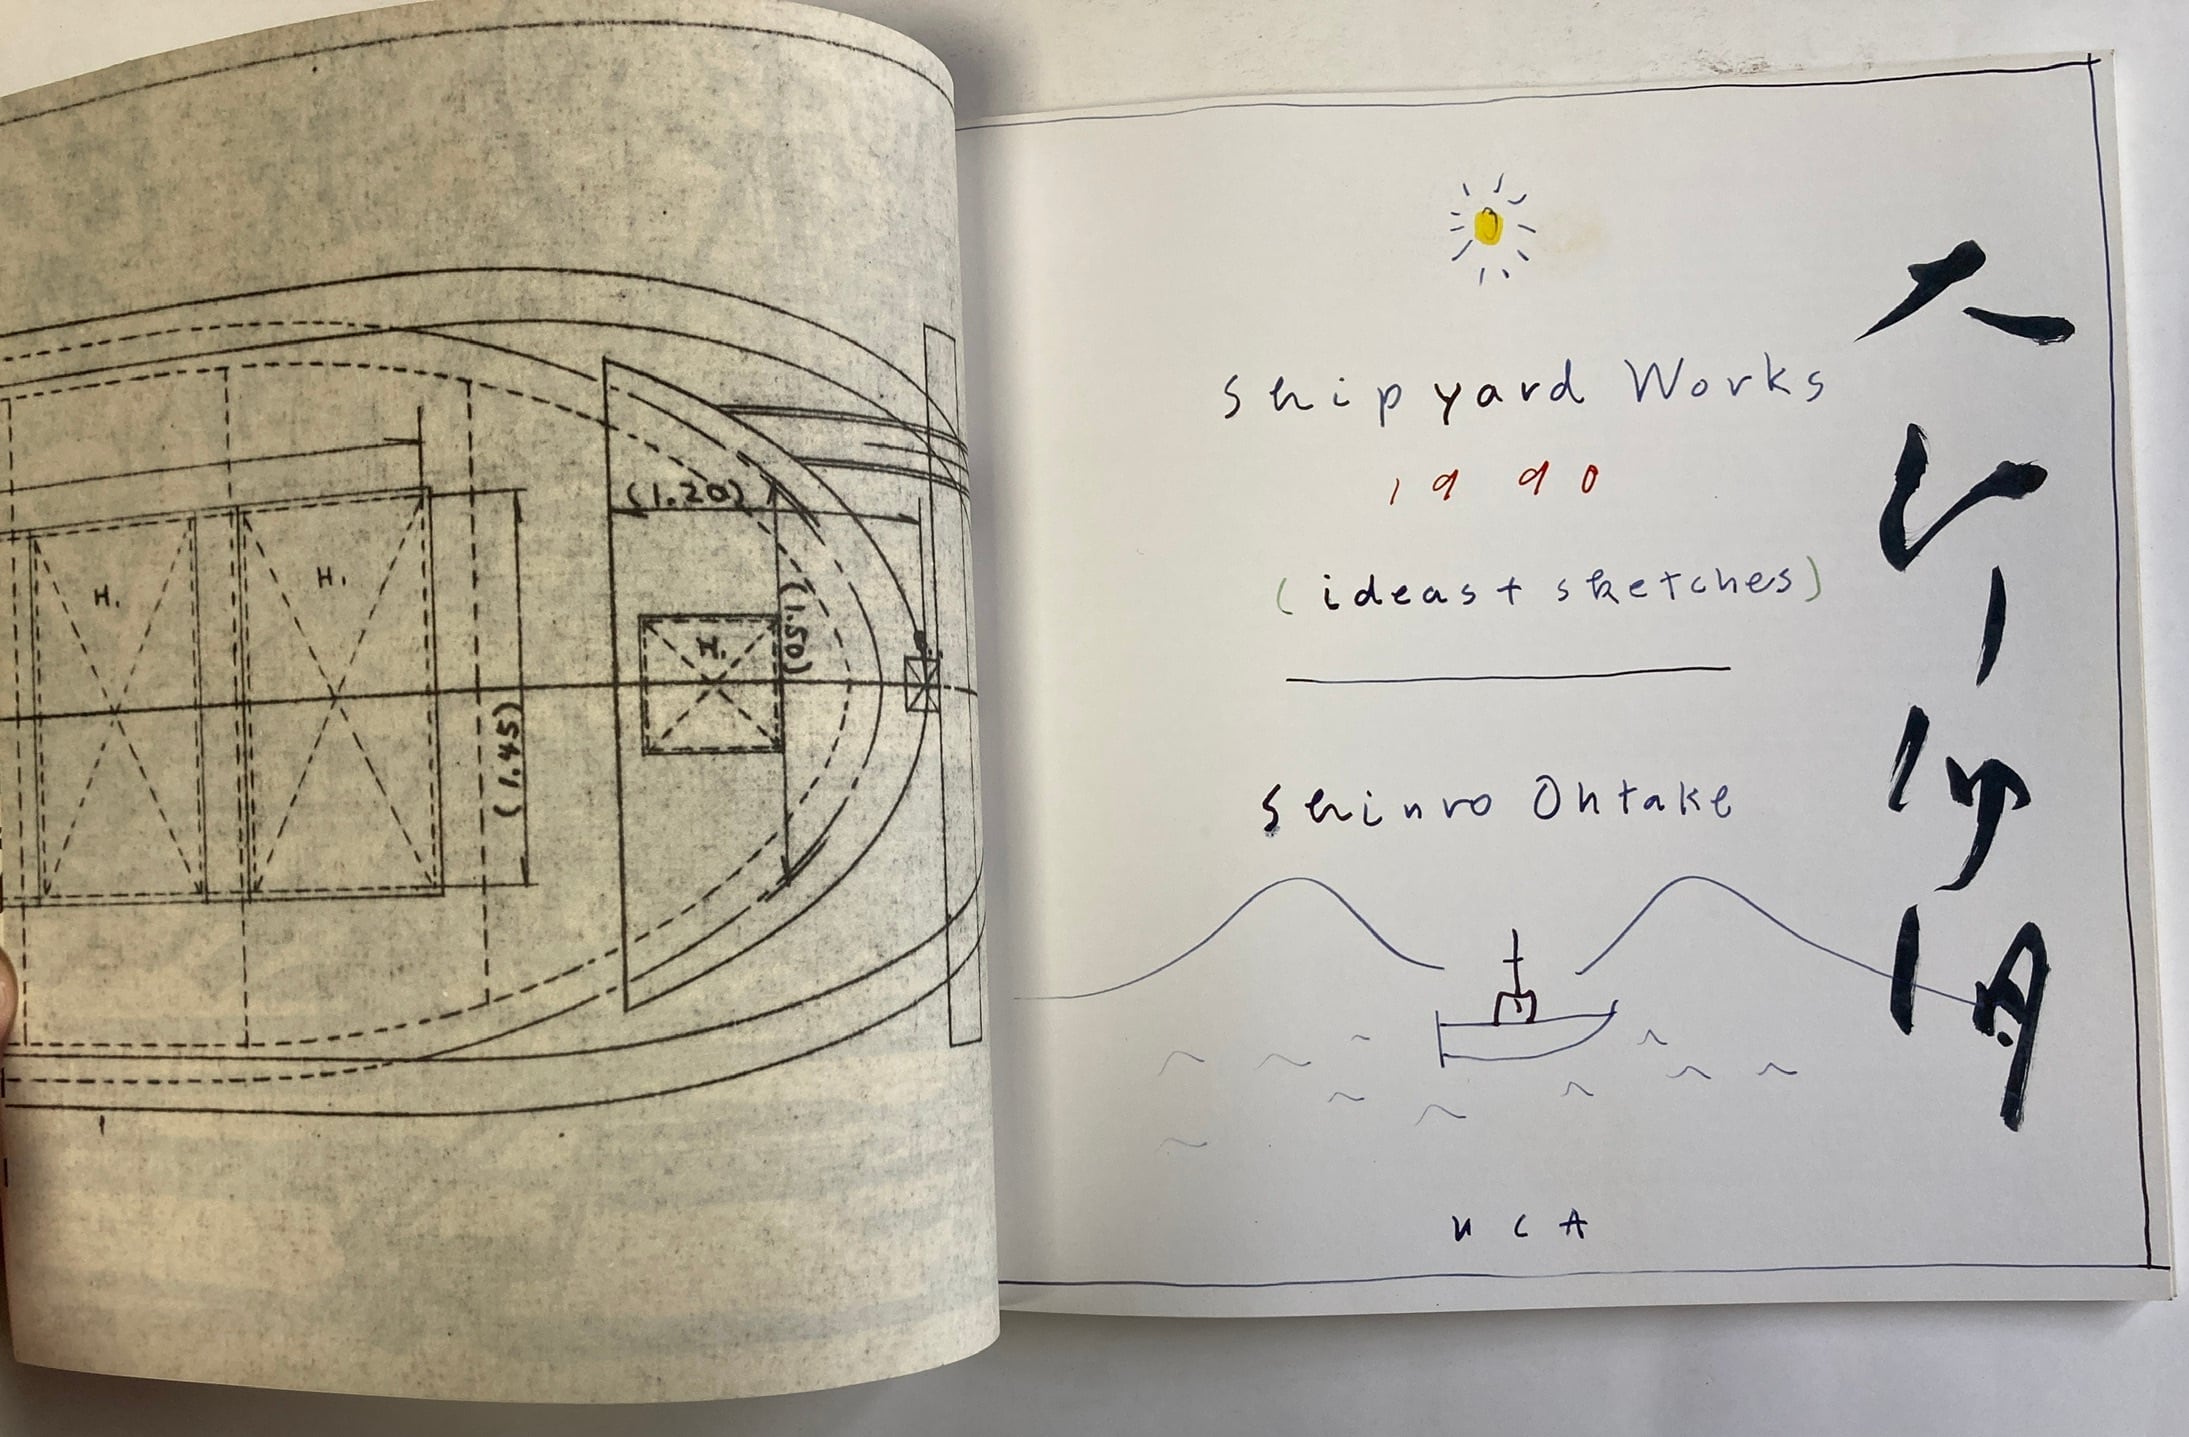 (1.20)
H.
H.
H.
(1.50)
(1.45)
Shipyard Works
1990
(ideas + sketches)
Shinro Ohtake
UCA